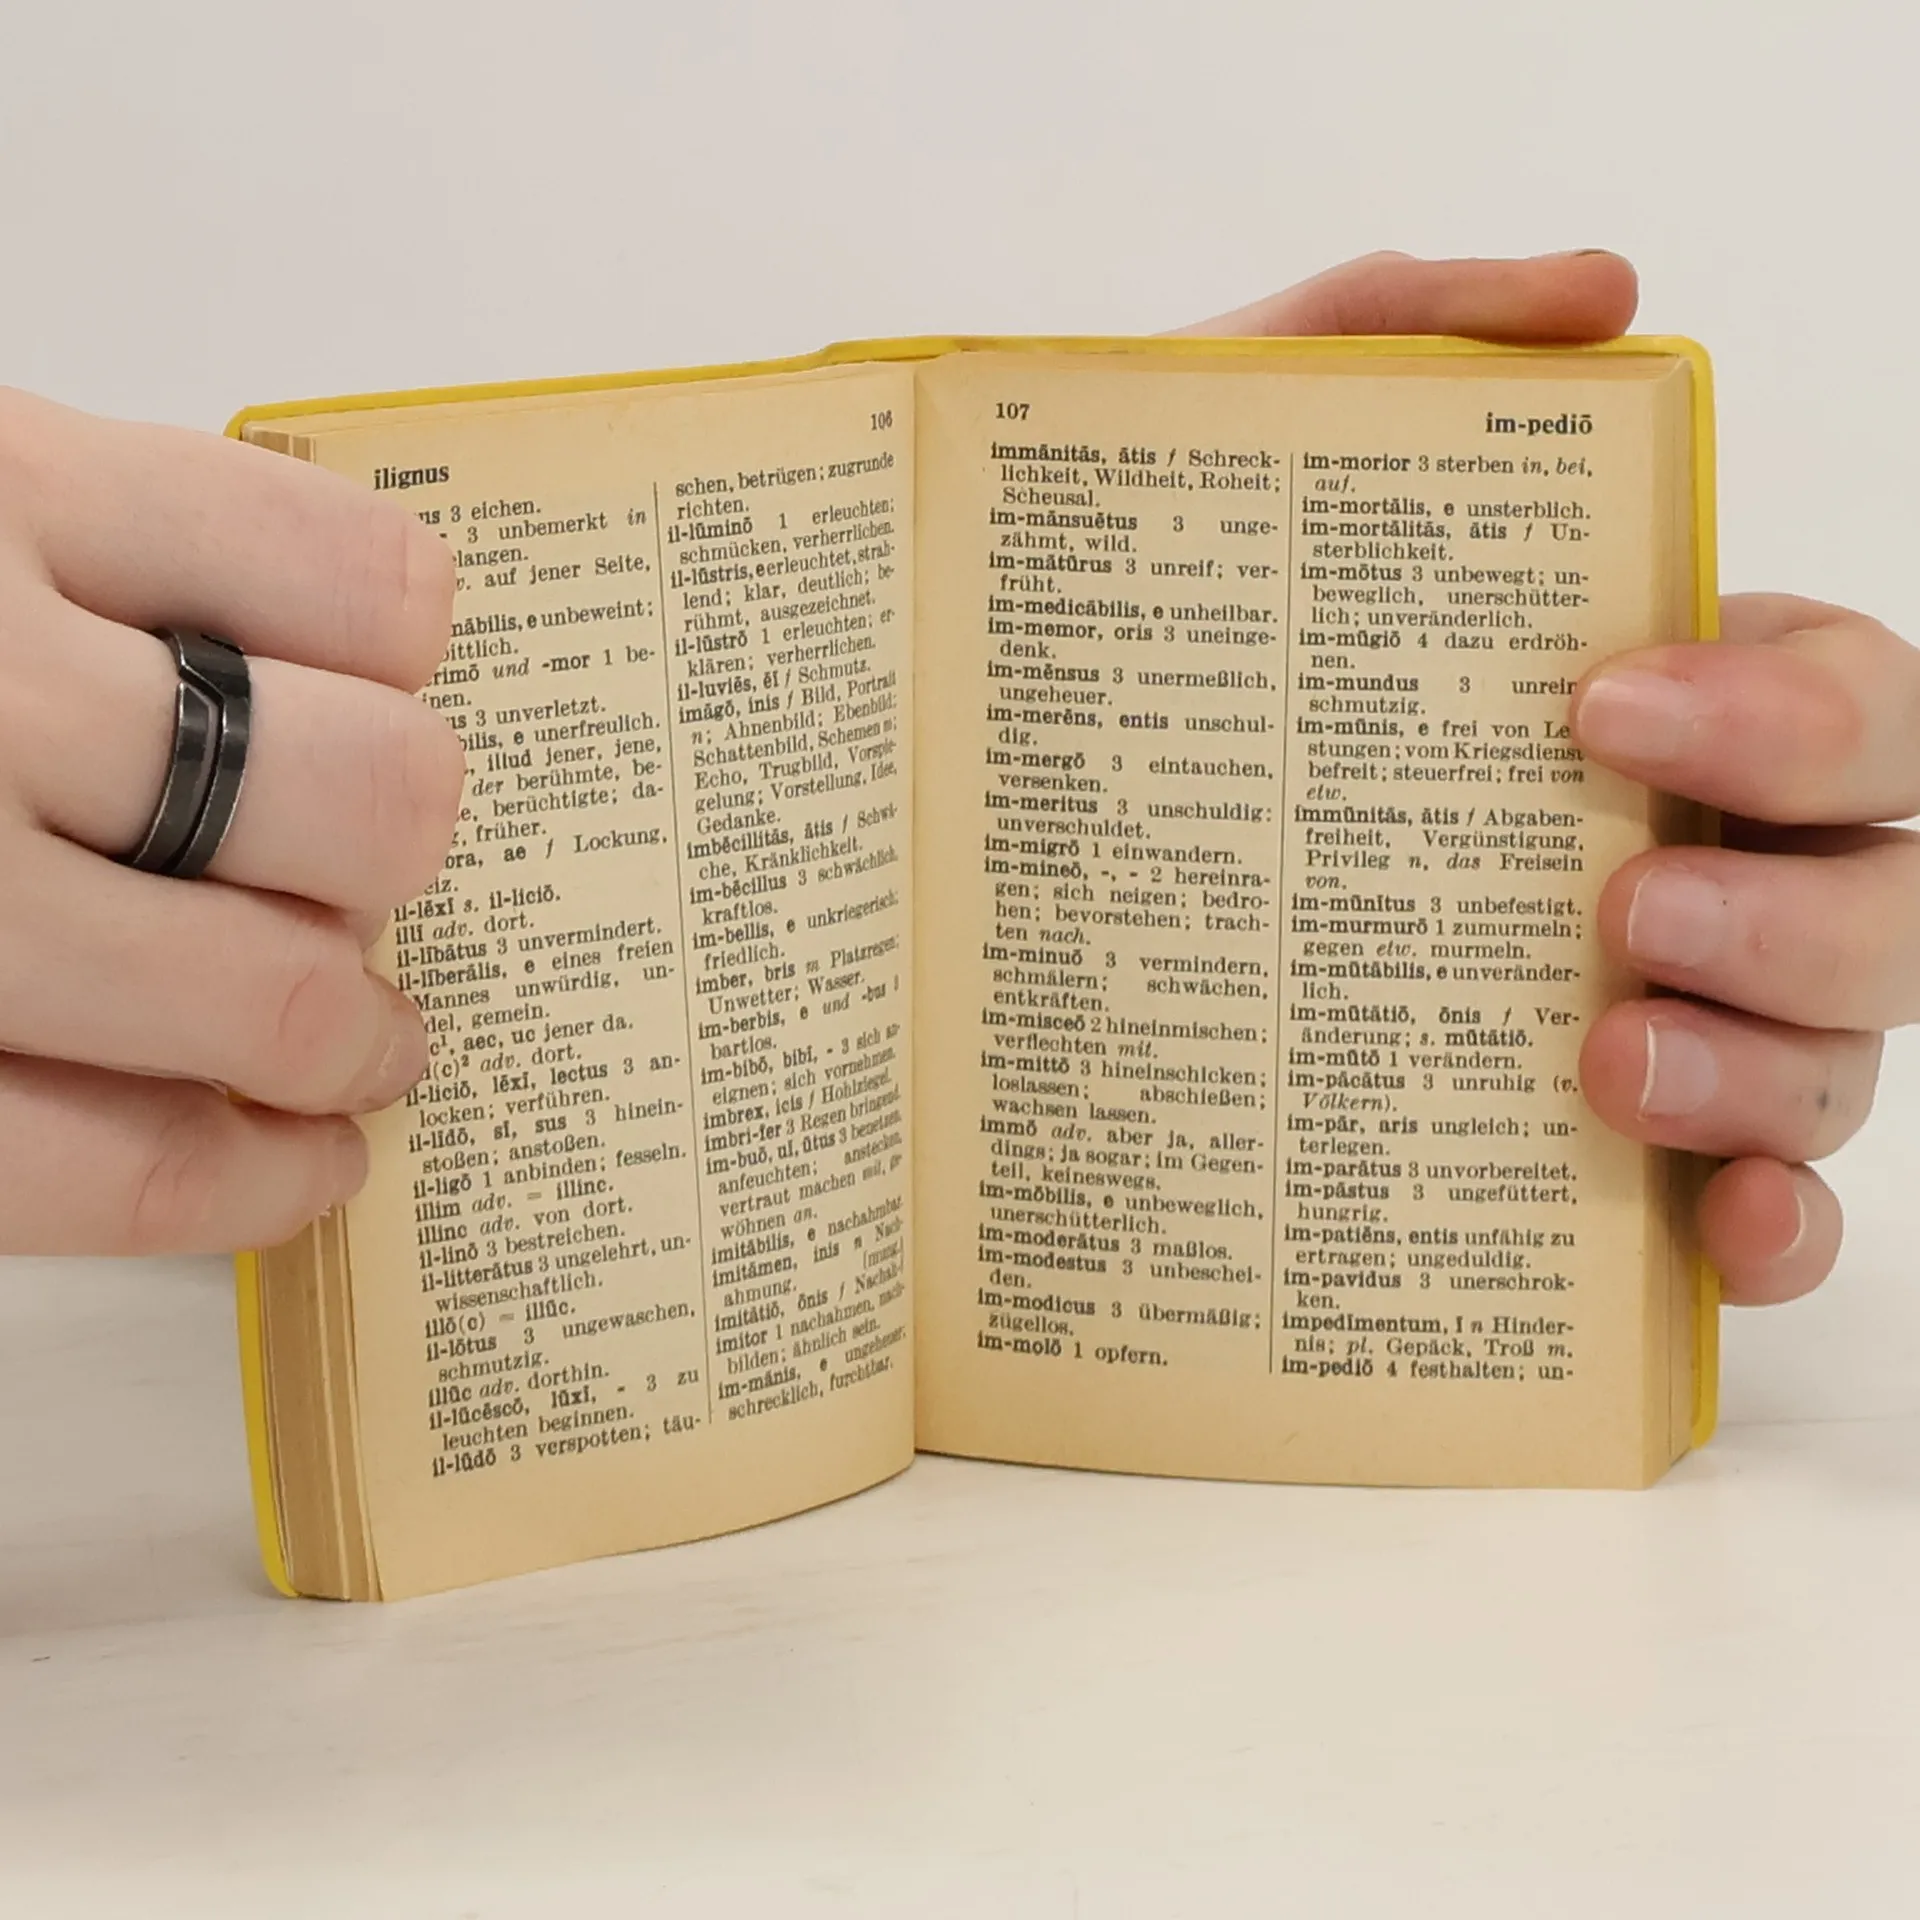 ilignus
106
3 eichen.
3 unbemerkt in
langen.
auf jener Seite,
unbeweint;
und -mor 1 be-
nen.
3 unverletzt.
e unerfreulich.
illud jener, jene,
der berühmte, be-
berüchtigte; da-
früher.
ae f Lockung,
il-lēxī s. il-liciō.
illī adv. dort.
il-lībātus 3 unvermindert.
il-līberālis, e eines freien
Mannes unwürdig, un-
del, gemein.
aec, uc jener da.
adv. dort.
il-liciō, lēxī, lectus 3 an-
locken; verführen.
il-līdō, sī, sus 3 hinein-
stoßen; anstoßen.
il-ligō 1 anbinden; fesseln.
illim adv. = illinc.
illinc adv. von dort.
il-linō 3 bestreichen.
il-litterātus 3 ungelehrt, un-
wissenschaftlich.
illō(c) = illūc.
il-lōtus 3 ungewaschen,
schmutzig.
illūc adv. dorthin.
il-lūcēscō, lūxī, - 3 zu
leuchten beginnen.
il-lūdō 3 verspotten; täu-
schen, betrügen; zugrunde
richten.
il-lūminō 1 erleuchten;
schmücken, verherrlichen.
il-lūstris, e erleuchtet, strah-
lend; klar, deutlich; be-
rühmt, ausgezeichnet.
il-lūstrō 1 erleuchten; er-
klären; verherrlichen.
il-luviēs, ēī f Schmutz.
imāgō, inis f Bild, Porträt
n; Ahnenbild; Ebenbild;
Schattenbild, Schemen m;
Echo, Trugbild, Vorspie-
gelung; Vorstellung, Idee,
Gedanke.
imbēcillitās, ātis f Schwä-
che, Kränklichkeit.
im-bēcillus 3 schwächlich,
kraftlos.
im-bellis, e unkriegerisch;
friedlich.
imber, bris m Platzregen;
Unwetter; Wasser.
im-berbis, e und -bus 3
bartlos.
im-bibō, bibī, - 3 sich an-
eignen; sich vornehmen.
imbrex, icis f Hohlziegel.
imbri-fer 3 Regen bringend.
im-buō, uī, ūtus 3 benetzen,
anfeuchten; anstecken,
vertraut machen mit, ge-
wöhnen an.
imitābilis, e nachahmbar.
imitāmen, inis n Nach-
ahmung. [mung.]
imitātiō, ōnis f Nachah-
imitor 1 nachahmen, nach-
bilden; ähnlich sein.
im-mānis, e ungeheuer;
schrecklich, furchtbar.
107
im-pediō
immānitās, ātis f Schreck-
lichkeit, Wildheit, Roheit;
Scheusal.
im-mānsuētus 3 unge-
zähmt, wild.
im-mātūrus 3 unreif; ver-
früht.
im-medicābilis, e unheilbar.
im-memor, oris 3 uneinge-
denk.
im-mēnsus 3 unermeßlich,
ungeheuer.
im-merēns, entis unschul-
dig.
im-mergō 3 eintauchen,
versenken.
im-meritus 3 unschuldig;
unverschuldet.
im-migrō 1 einwandern.
im-mineō, -, - 2 hereinra-
gen; sich neigen; bedro-
hen; bevorstehen; trach-
ten nach.
im-minuō 3 vermindern,
schmälern; schwächen,
entkräften.
im-misceō 2 hineinmischen;
verflechten mit.
im-mittō 3 hineinschicken;
loslassen; abschießen;
wachsen lassen.
immō adv. aber ja, aller-
dings; ja sogar; im Gegen-
teil, keineswegs.
im-mōbilis, e unbeweglich,
unerschütterlich.
im-moderātus 3 maßlos.
im-modestus 3 unbeschei-
den.
im-modicus 3 übermäßig;
zügellos.
im-molō 1 opfern.
im-morior 3 sterben in, bei,
auf.
im-mortālis, e unsterblich.
im-mortālitās, ātis f Un-
sterblichkeit.
im-mōtus 3 unbewegt; un-
beweglich, unerschütter-
lich; unveränderlich.
im-mūgiō 4 dazu erdröh-
nen.
im-mundus 3 unrein
schmutzig.
im-mūnis, e frei von Le
stungen; vom Kriegsdienst
befreit; steuerfrei; frei von
etw.
immūnitās, ātis f Abgaben-
freiheit, Vergünstigung,
Privileg n, das Freisein
von.
im-mūnītus 3 unbefestigt.
im-murmurō 1 zumurmeln;
gegen etw. murmeln.
im-mūtābilis, e unveränder-
lich.
im-mūtātiō, ōnis f Ver-
änderung; s. mūtātiō.
im-mūtō 1 verändern.
im-pācātus 3 unruhig (v.
Völkern).
im-pār, aris ungleich; un-
terlegen.
im-parātus 3 unvorbereitet.
im-pāstus 3 ungefüttert,
hungrig.
im-patiēns, entis unfähig zu
ertragen; ungeduldig.
im-pavidus 3 unerschrok-
ken.
impedīmentum, ī n Hinder-
nis; pl. Gepäck, Troß m.
im-pediō 4 festhalten; un-